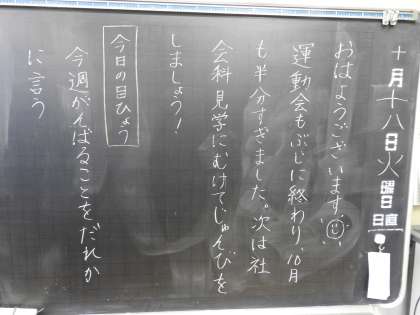 十月十八日火曜日
日直
おはようございます。
運動会もぶじに終わり、10月
も半分すぎました。次は社
会科見学にむけてじゅんびを
しましょう！
今日の目ひょう
今週がんばることをだれか
に言う